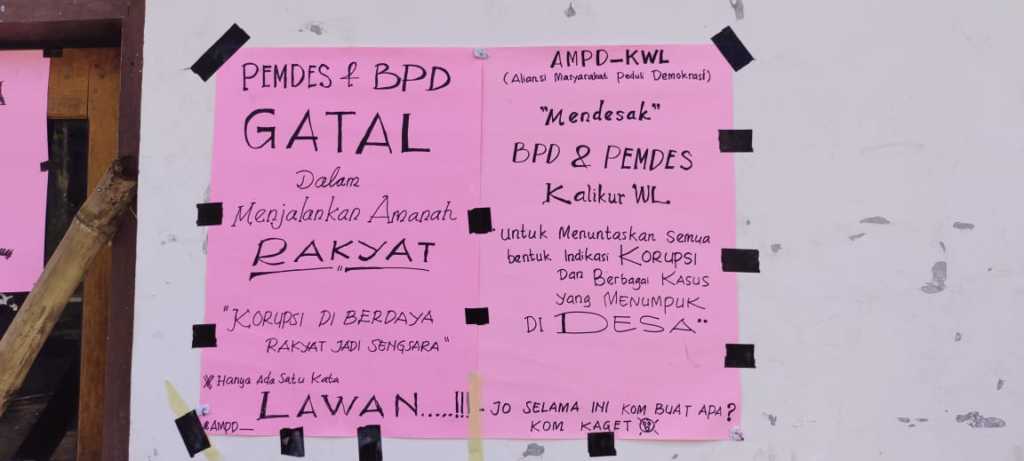 PEMDES & BPD
GATAL
Dalam
Menjalankan Amanah
RAKYAT
"KORUPSI DI BERDAYA
RAKYAT JADI SENGSARA"
Hanya Ada Satu Kata
LAWAN.....!!!
AMPD_
AMPD_KWL
(Aliansi Masyarakat Peduli Demokrasi)
"Mendesak"
BPD & PEMDES
Kalikur WL
Untuk Menuntaskan Semua
bentuk Indikasi KORUPSI
Dan Berbagai KASUS
yang MENUMPUK
DI DESA"
- JO SELAMA INI KOM BUAT APA?
KOM KAGET